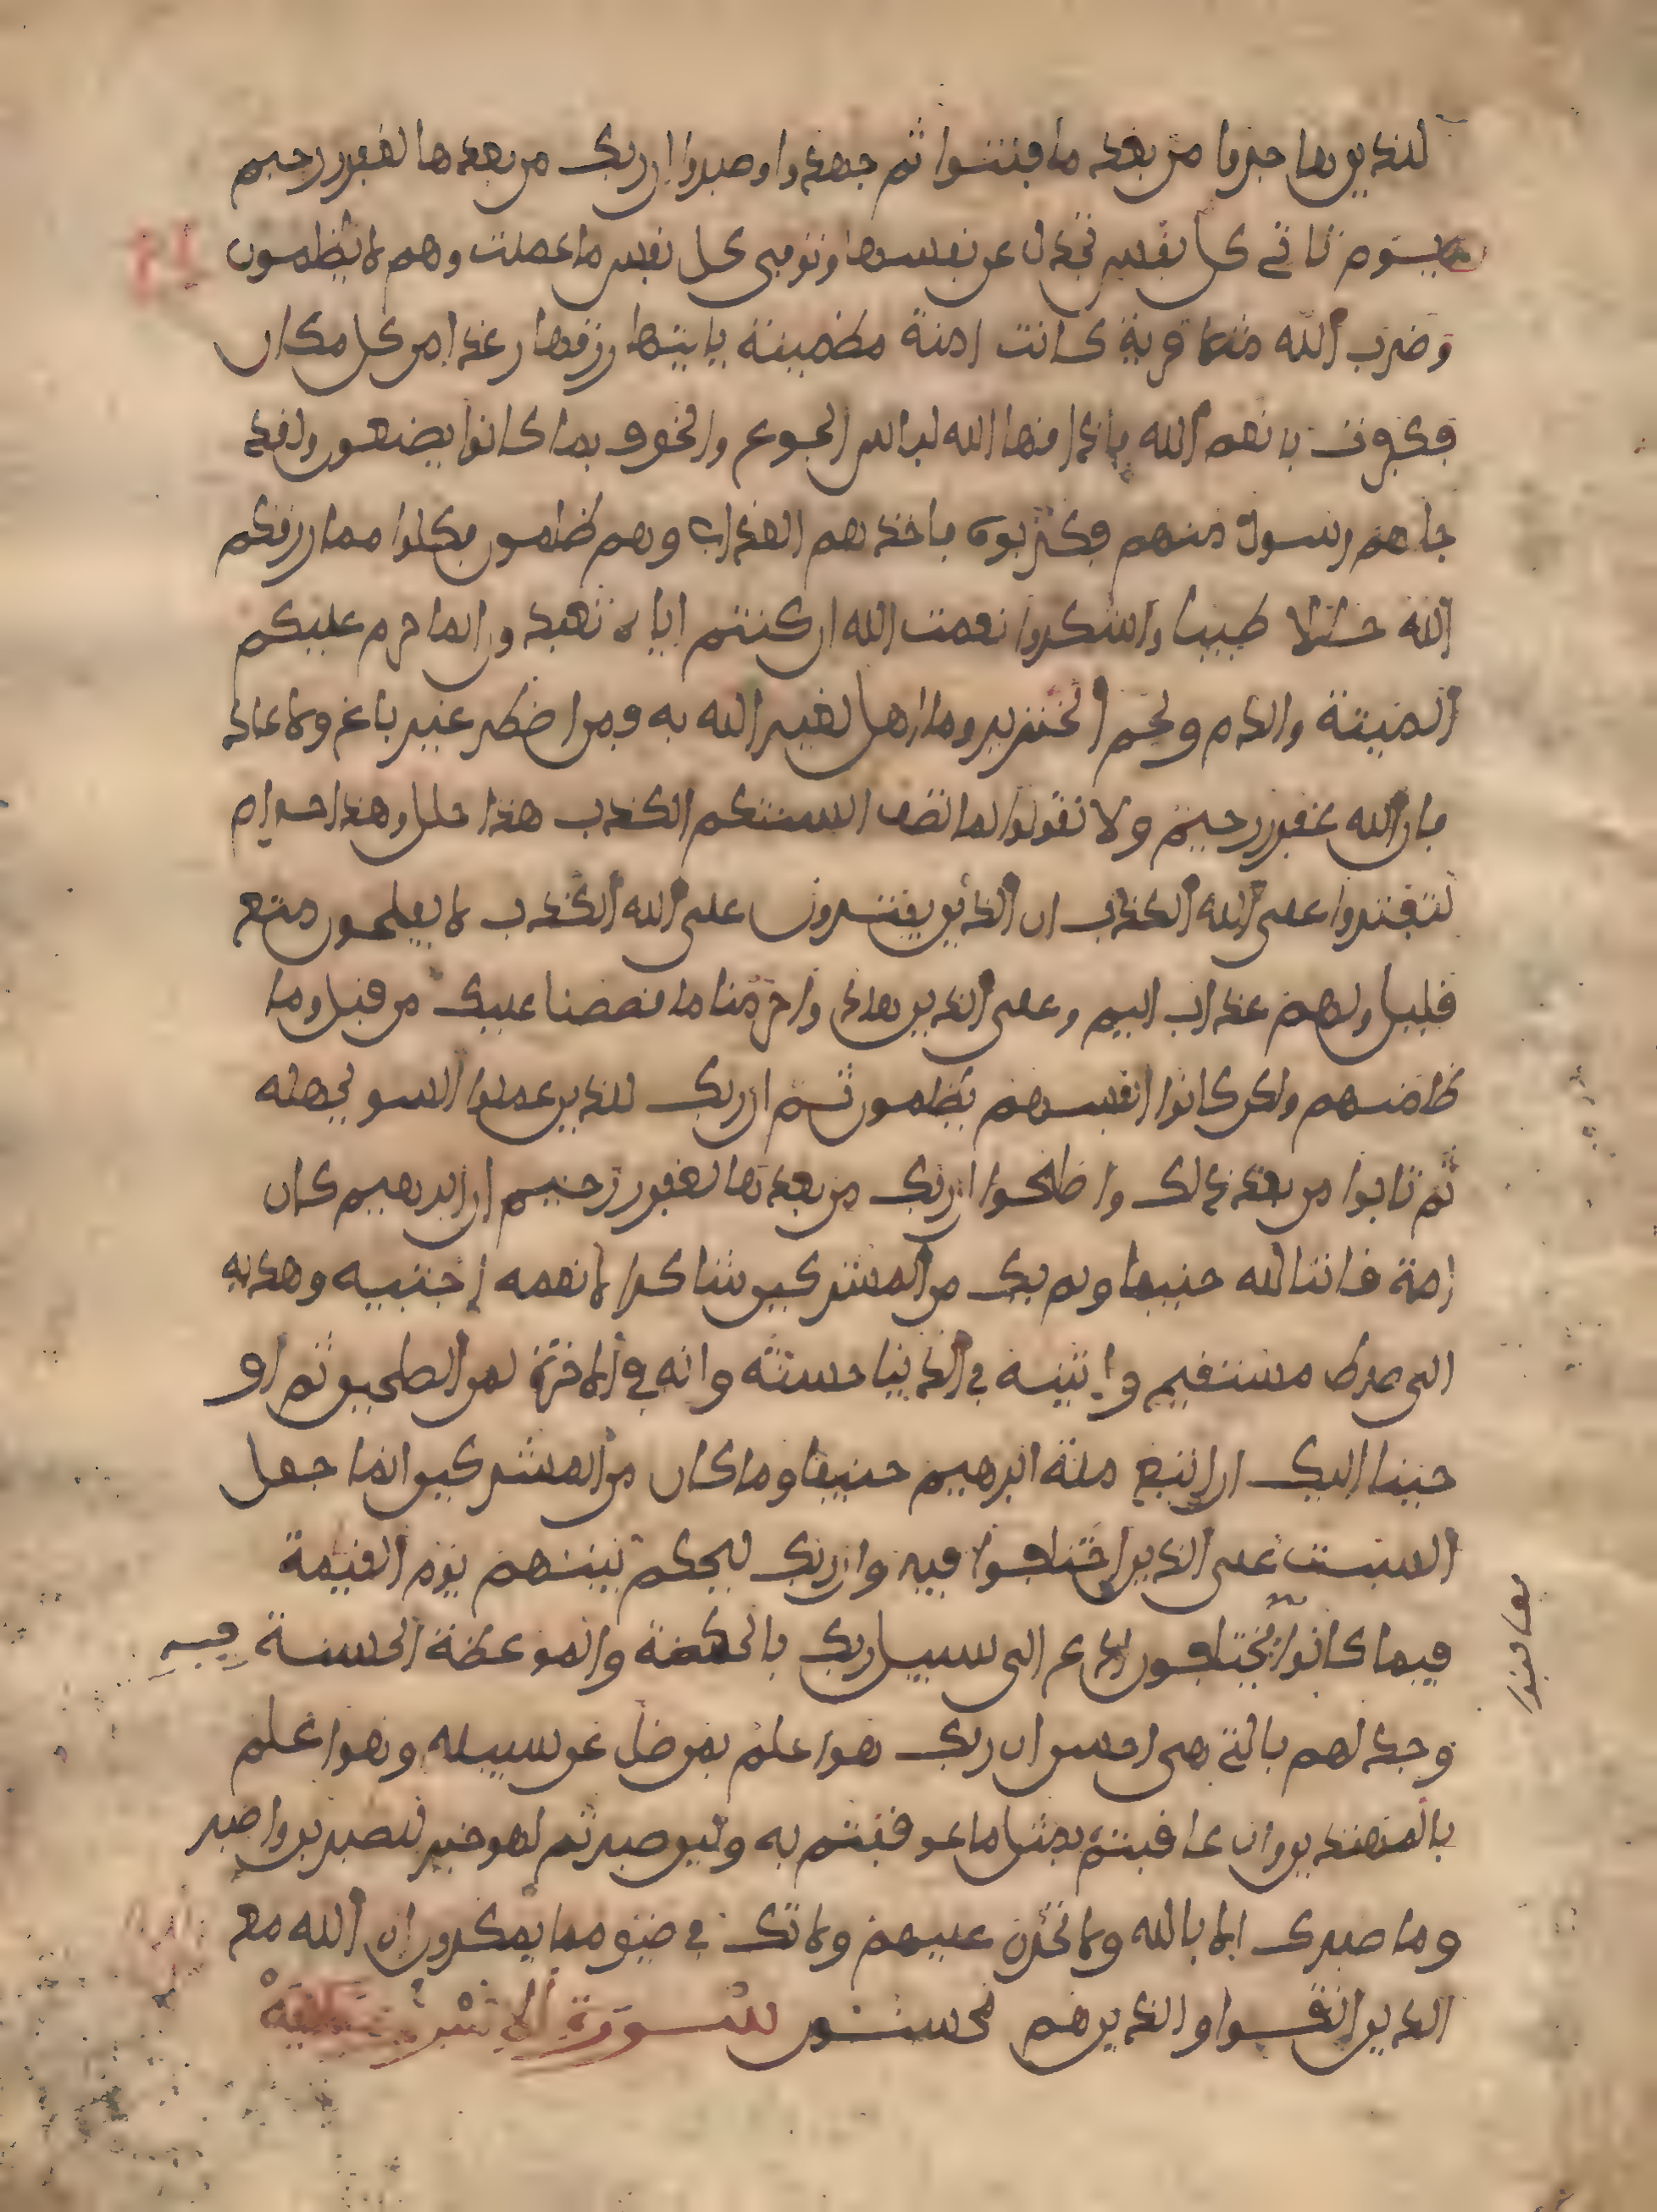 للذين هاجروا من بعد ما فتنوا ثم جهدوا وصبروا ان ربك من بعدها لغفور رحيم
يوم تاتى كل نفس تجدل عن نفسها وتوفى كل نفس ما عملت وهم لا يظلمون
وضرب الله مثلا قرية كانت امنة مطمينة ياتيها رزقها رغدا من كل مكان
فكفرت بانعم الله فاذاقها الله لباس الجوع والخوف بما كانوا يصنعون ولقد
جاهم رسول منهم فكذبوه فاخذهم العذاب وهم ظلمون فكلوا مما رزقكم
الله حللا طيبا واشكروا نعمت الله ان كنتم اياه تعبدون انما حرم عليكم
الميتة والدم ولحم الخنزير وما اهل لغير الله به فمن اضطر غير باغ ولا عاد
فان الله غفور رحيم ولا تقولوا لما تصف السنتكم الكذب هذا حلل وهذا حرام
لتفتروا على الله الكذب ان الذين يفترون على الله الكذب لا يفلحون متع
قليل ولهم عذاب اليم وعلى الذين هادوا حرمنا ما قصصنا عليك من قبل وما
ظلمنهم ولكن كانوا انفسهم يظلمون ثم ان ربك للذين عملوا السو بجهلة
ثم تابوا من بعد ذالك واصلحوا ان ربك من بعدها لغفور رحيم ان ابرهيم كان
امة قانتا لله حنيفا ولم يك من المشركين شاكرا لانعمه اجتبيه وهديه
الى صرط مستقيم واتينه في الدنيا حسنة وانه في الاخرة لمن الصلحين ثم او
حينا اليك ان اتبع ملة ابرهيم حنيفا وما كان من المشركين انما جعل
السبت على الذين اختلفوا فيه وان ربك ليحكم بينهم يوم القيمة
فيما كانوا يختلفون ادع الى سبيل ربك بالحكمة والموعظة الحسنة
فيه
وجدلهم بالتي هى احسن ان ربك هو اعلم بمن ضل عن سبيله وهو اعلم
بالمهتدين وان عاقبتم فعاقبوا بمثل ما عوقبتم به ولين صبرتم لهو خير للصبرين واصبر
وما صبرك الا بالله ولا تحزن عليهم ولا تك في ضيق مما يمكرون ان الله مع
الذين اتقوا والذين هم محسنون سورة الاسرى